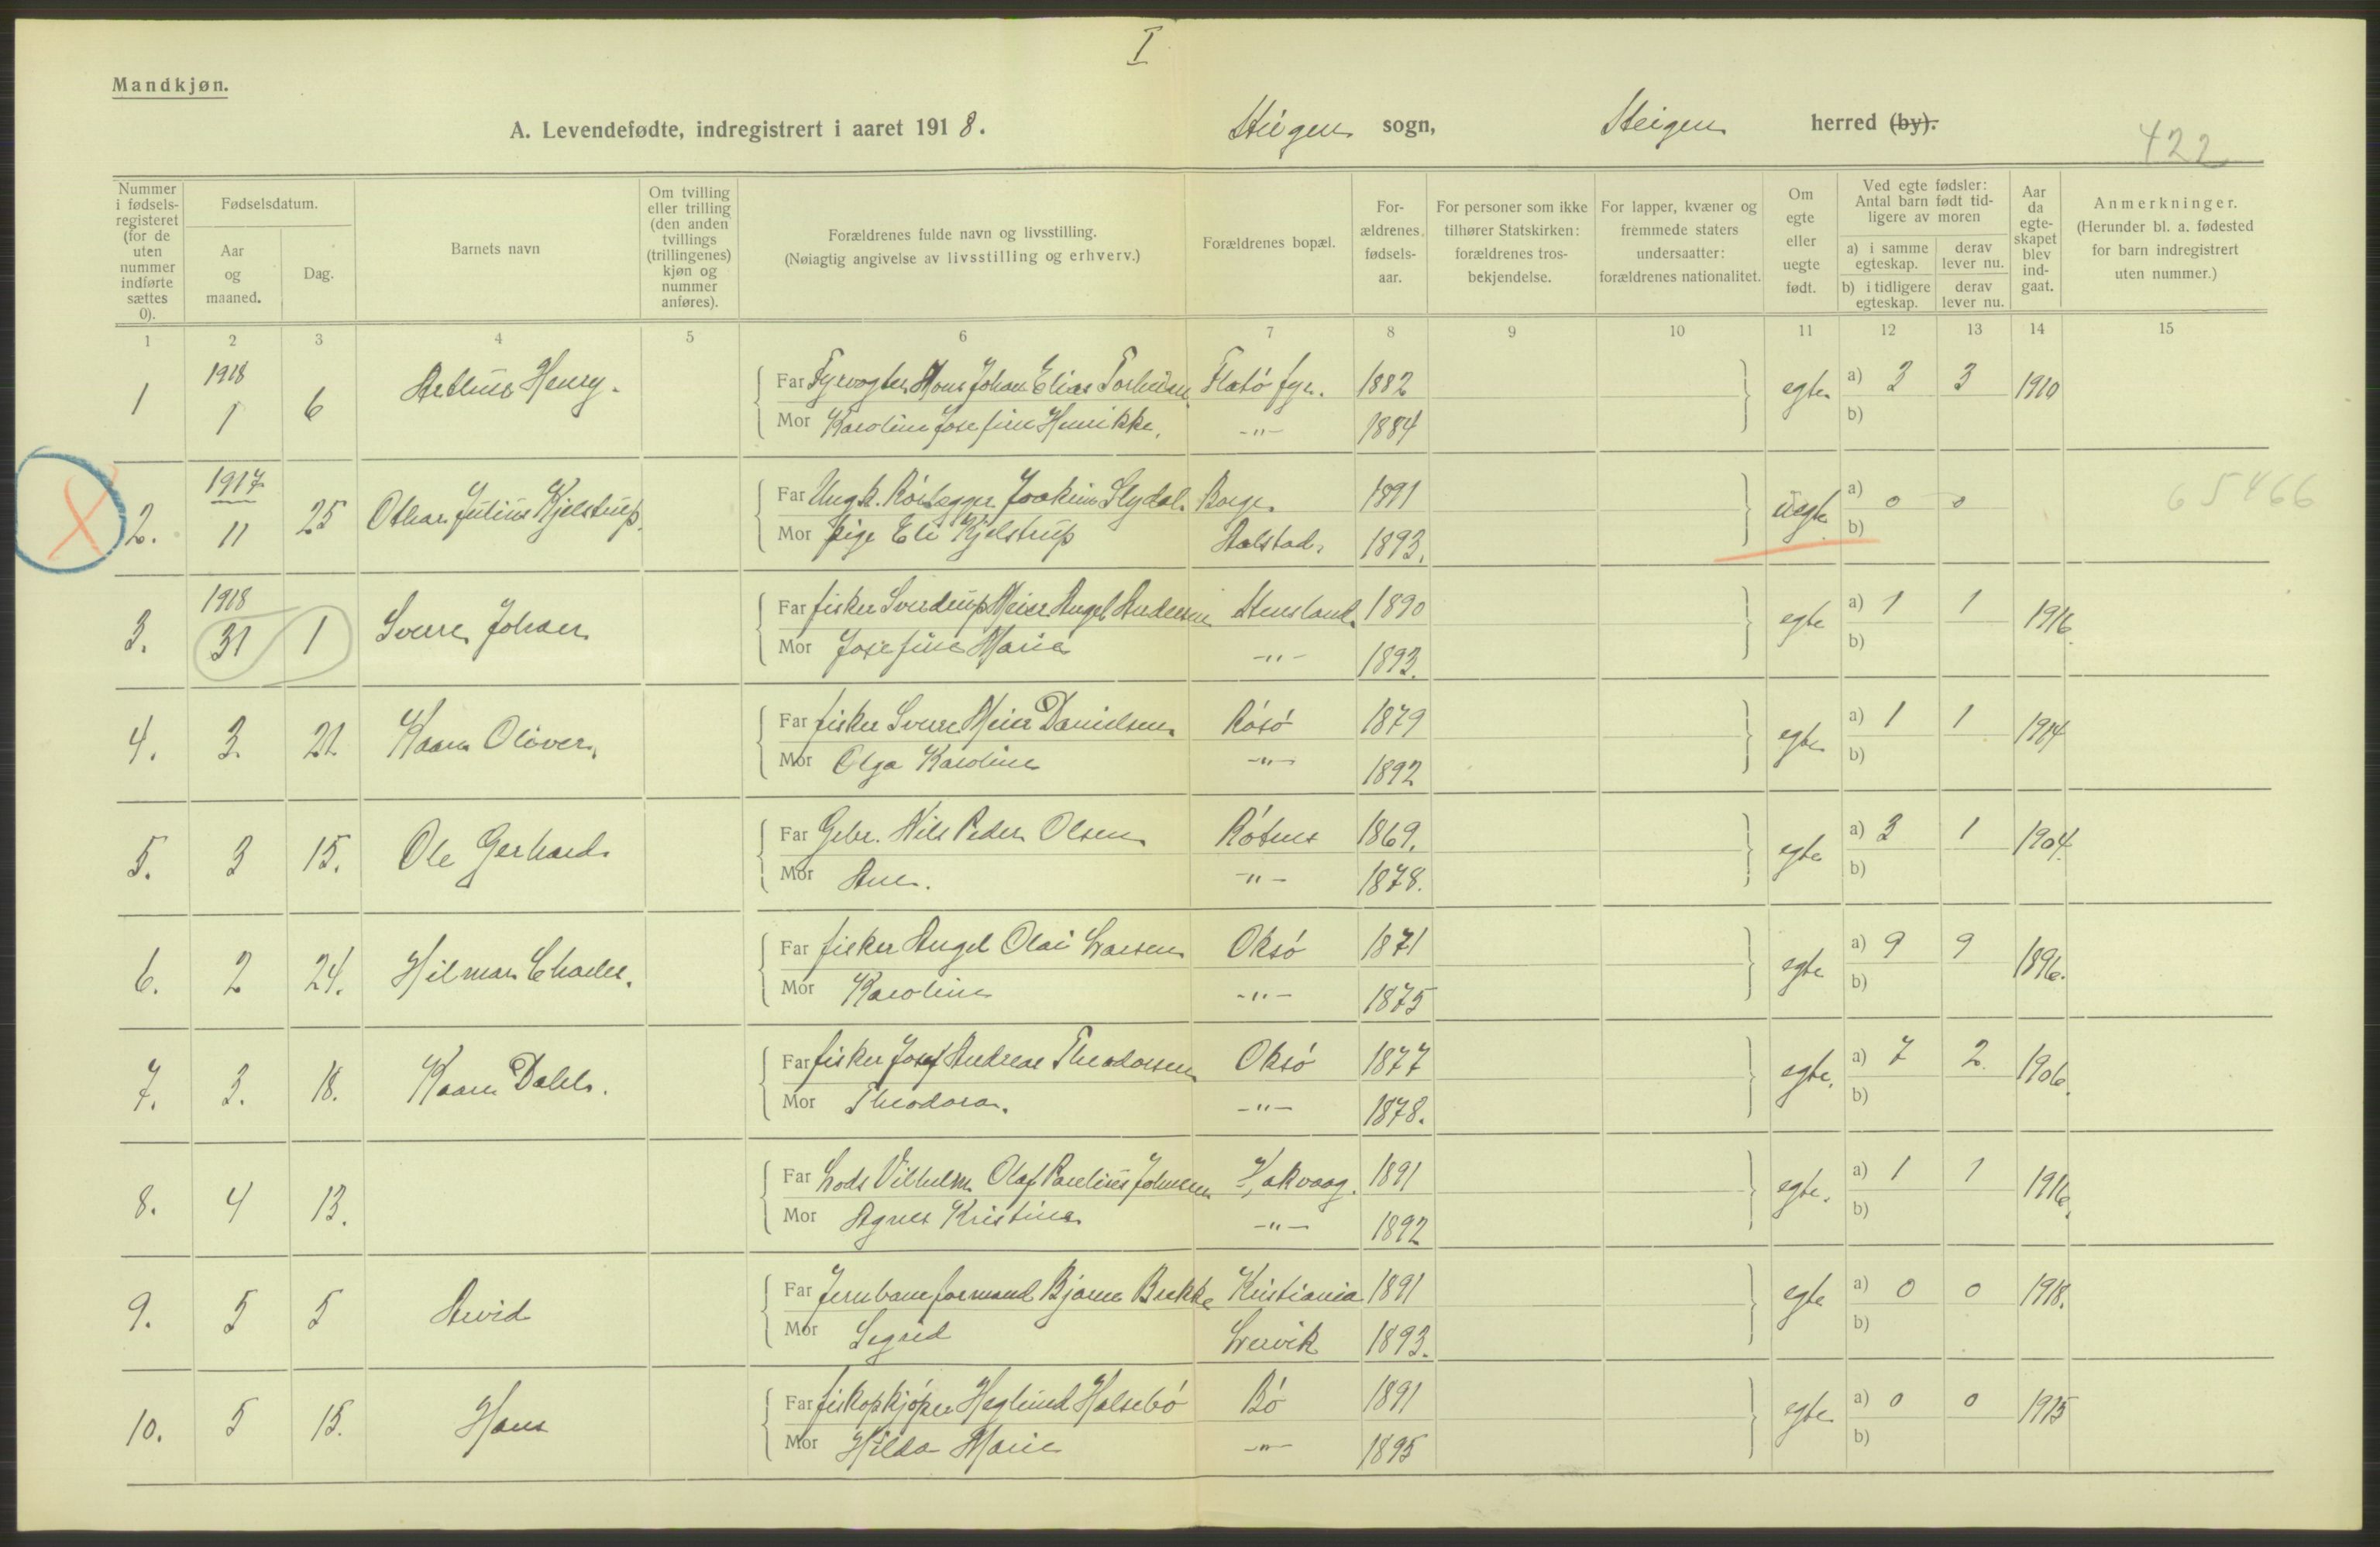 I
Mandkjøn.
A. Levendefødte, indregistrert i aaret 1918. Steigen sogn, Steigen herred (by).
422
Nummer i fødselsregisteret (for de uten nummer indførte sættes 0).
Fødselsdatum.
Aar og maaned.
Dag.
Barnets navn
Om tvilling eller trilling (den anden tvillings (trillingenes) kjøn og nummer anføres).
Forældrenes fulde navn og livsstilling.
(Nøiagtig angivelse av livsstilling og erhverv.)
Forældrenes bopæl.
Forældrenes fødselsaar.
For personer som ikke tilhører Statskirken: forældrenes trosbekjendelse.
For lapper, kvæner og fremmede staters undersaatter: forældrenes nationalitet.
Om egte eller uegte født.
Ved egte fødsler: Antal barn født tidligere av moren
a) i samme egteskap. derav lever nu.
b) i tidligere egteskap. derav lever nu.
Aar da egteskapet blev indgaat.
Anmerkninger.
(Herunder bl. a. fødested for barn indregistrert uten nummer.)
1 2 3 4 5 6 7 8 9 10 11 12 13 14 15
1 1918 1 6 Arthur Henry. Far Fyrvogter Hans Johan Elias Flatö fyr. 1882 egte a) 3 3 1910
Mor Karoline Josefine Henrikke. -"- 1884 b)
2. 1917 11 25 Othar Julius Kjelstrup. Far Ungk. Rörlægger Joakim Slydal. Borge. 1891 uegte a) 0 0 65466
Mor pige Eli Kjelstrup Aalstad. 1893. b)
3. 1918 31 1 Sverre Johan Far fisker Sverdrup Meier Angel Andersen Stensland. 1890 egte a) 1 1 1916
Mor Josefine Marie -"- 1893. b)
4. 3. 21. Kaare Oliver. Far fisker Sverre Meier Danielsen Rösö 1879 egte a) 1 1 1914
Mor Olga Karoline -"- 1892 b)
5. 3 15. Ole Gerhard. Far Gbr. Nils Peder Olsen Rötnes 1869. egte a) 3 1 1904.
Mor Ane. -"- 1878. b)
6. 2 24. Hilmar Charles. Far fisker Angel Olai Larsen Oksö 1871 egte a) 9 9 1896.
Mor Karoline -"- 1875 b)
7. 3. 18. Kaare Dahl. Far fisker Josef Andreas Theodorsen Oksö 1877 egte. a) 7 2 1906.
Mor Theodora. -"- 1878. b)
8. 4 13. Far Lods Vilhelm Olaf Paulius Johnsen Kakvaag. 1891 egte. a) 1 1 1916.
Mor Agnes Kristine -"- 1892 b)
9. 5 5 Arvid Far Jernbaneformand Bjarne Brekke Kristiania 1891 egte a) 0 0 1918.
Mor Sigrid Lervik 1893. b)
10. 5 15. Hans Far fiskopkjöper Heglund Halsebö Bö 1891 egte a) 0 0 1915
Mor Hilda Marie -"- 1895 b)